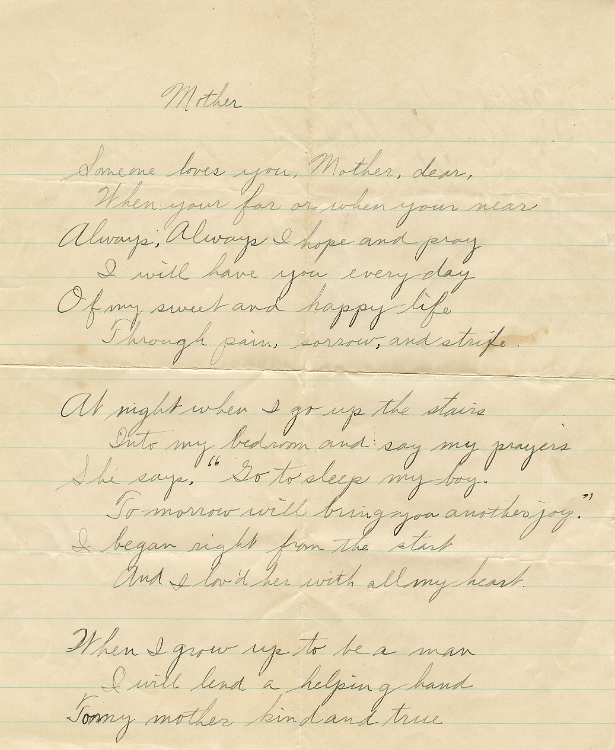 Mother
Someone loves you, Mother, dear,
When your far or when your near
Always, Always I hope and pray
I will have you every day
Of my sweet and happy life
Through pain, sorrow, and strife.
At night when I go up the stairs
Into my bedroom and say my prayers
She says, "Go to sleep my boy.
To morrow will bring you another joy."
I began right from the start
And I lov'd her with all my heart.
When I grow up to be a man
I will lend a helping hand
To my mother kind and true